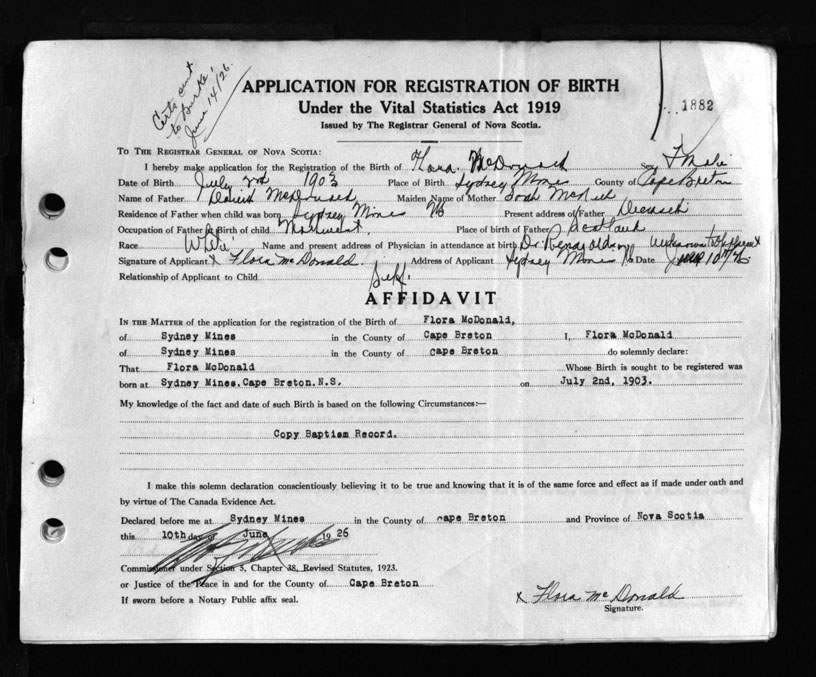 Certs sent
to Burke
June 14/26.
APPLICATION FOR REGISTRATION OF BIRTH
Under the Vital Statistics Act 1919
1882
Issued by The Registrar General of Nova Scotia.
To The Registrar General of Nova Scotia:
I hereby make application for the Registration of the Birth of Flora McDonald Sex Female
Date of Birth July 2nd 1903 Place of Birth Sydney Mines County of Cape Breton
Name of Father McDonald Maiden Name of Mother
Residence of Father when child was born Sydney Mines NS Present address of Father
Occupation of Father at Birth of child Place of birth of Father Scotland
Race White Name and present address of Physician in attendance at birth Dr.
Signature of Applicant x Flora McDonald. Address of Applicant Sydney Mines Date June 10th/26
Relationship of Applicant to Child Self.
AFFIDAVIT
In the Matter of the application for the registration of the Birth of Flora McDonald,
of Sydney Mines in the County of Cape Breton I, Flora McDonald
of Sydney Mines in the County of cape Breton do solemnly declare:
That Flora McDonald Whose Birth is sought to be registered was
born at Sydney Mines, Cape Breton, N.S. on July 2nd, 1903.
My knowledge of the fact and date of such Birth is based on the following Circumstances:—
Copy Baptism Record.
I make this solemn declaration conscientiously believing it to be true and knowing that it is of the same force and effect as if made under oath and
by virtue of The Canada Evidence Act.
Declared before me at Sydney Mines in the County of cape Breton and Province of Nova Scotia
this 10th day of June 1926
Commissioner under Section 5, Chapter 38, Revised Statutes, 1923.
or Justice of the Peace in and for the County of Cape Breton
If sworn before a Notary Public affix seal.
x Flora McDonald
Signature.